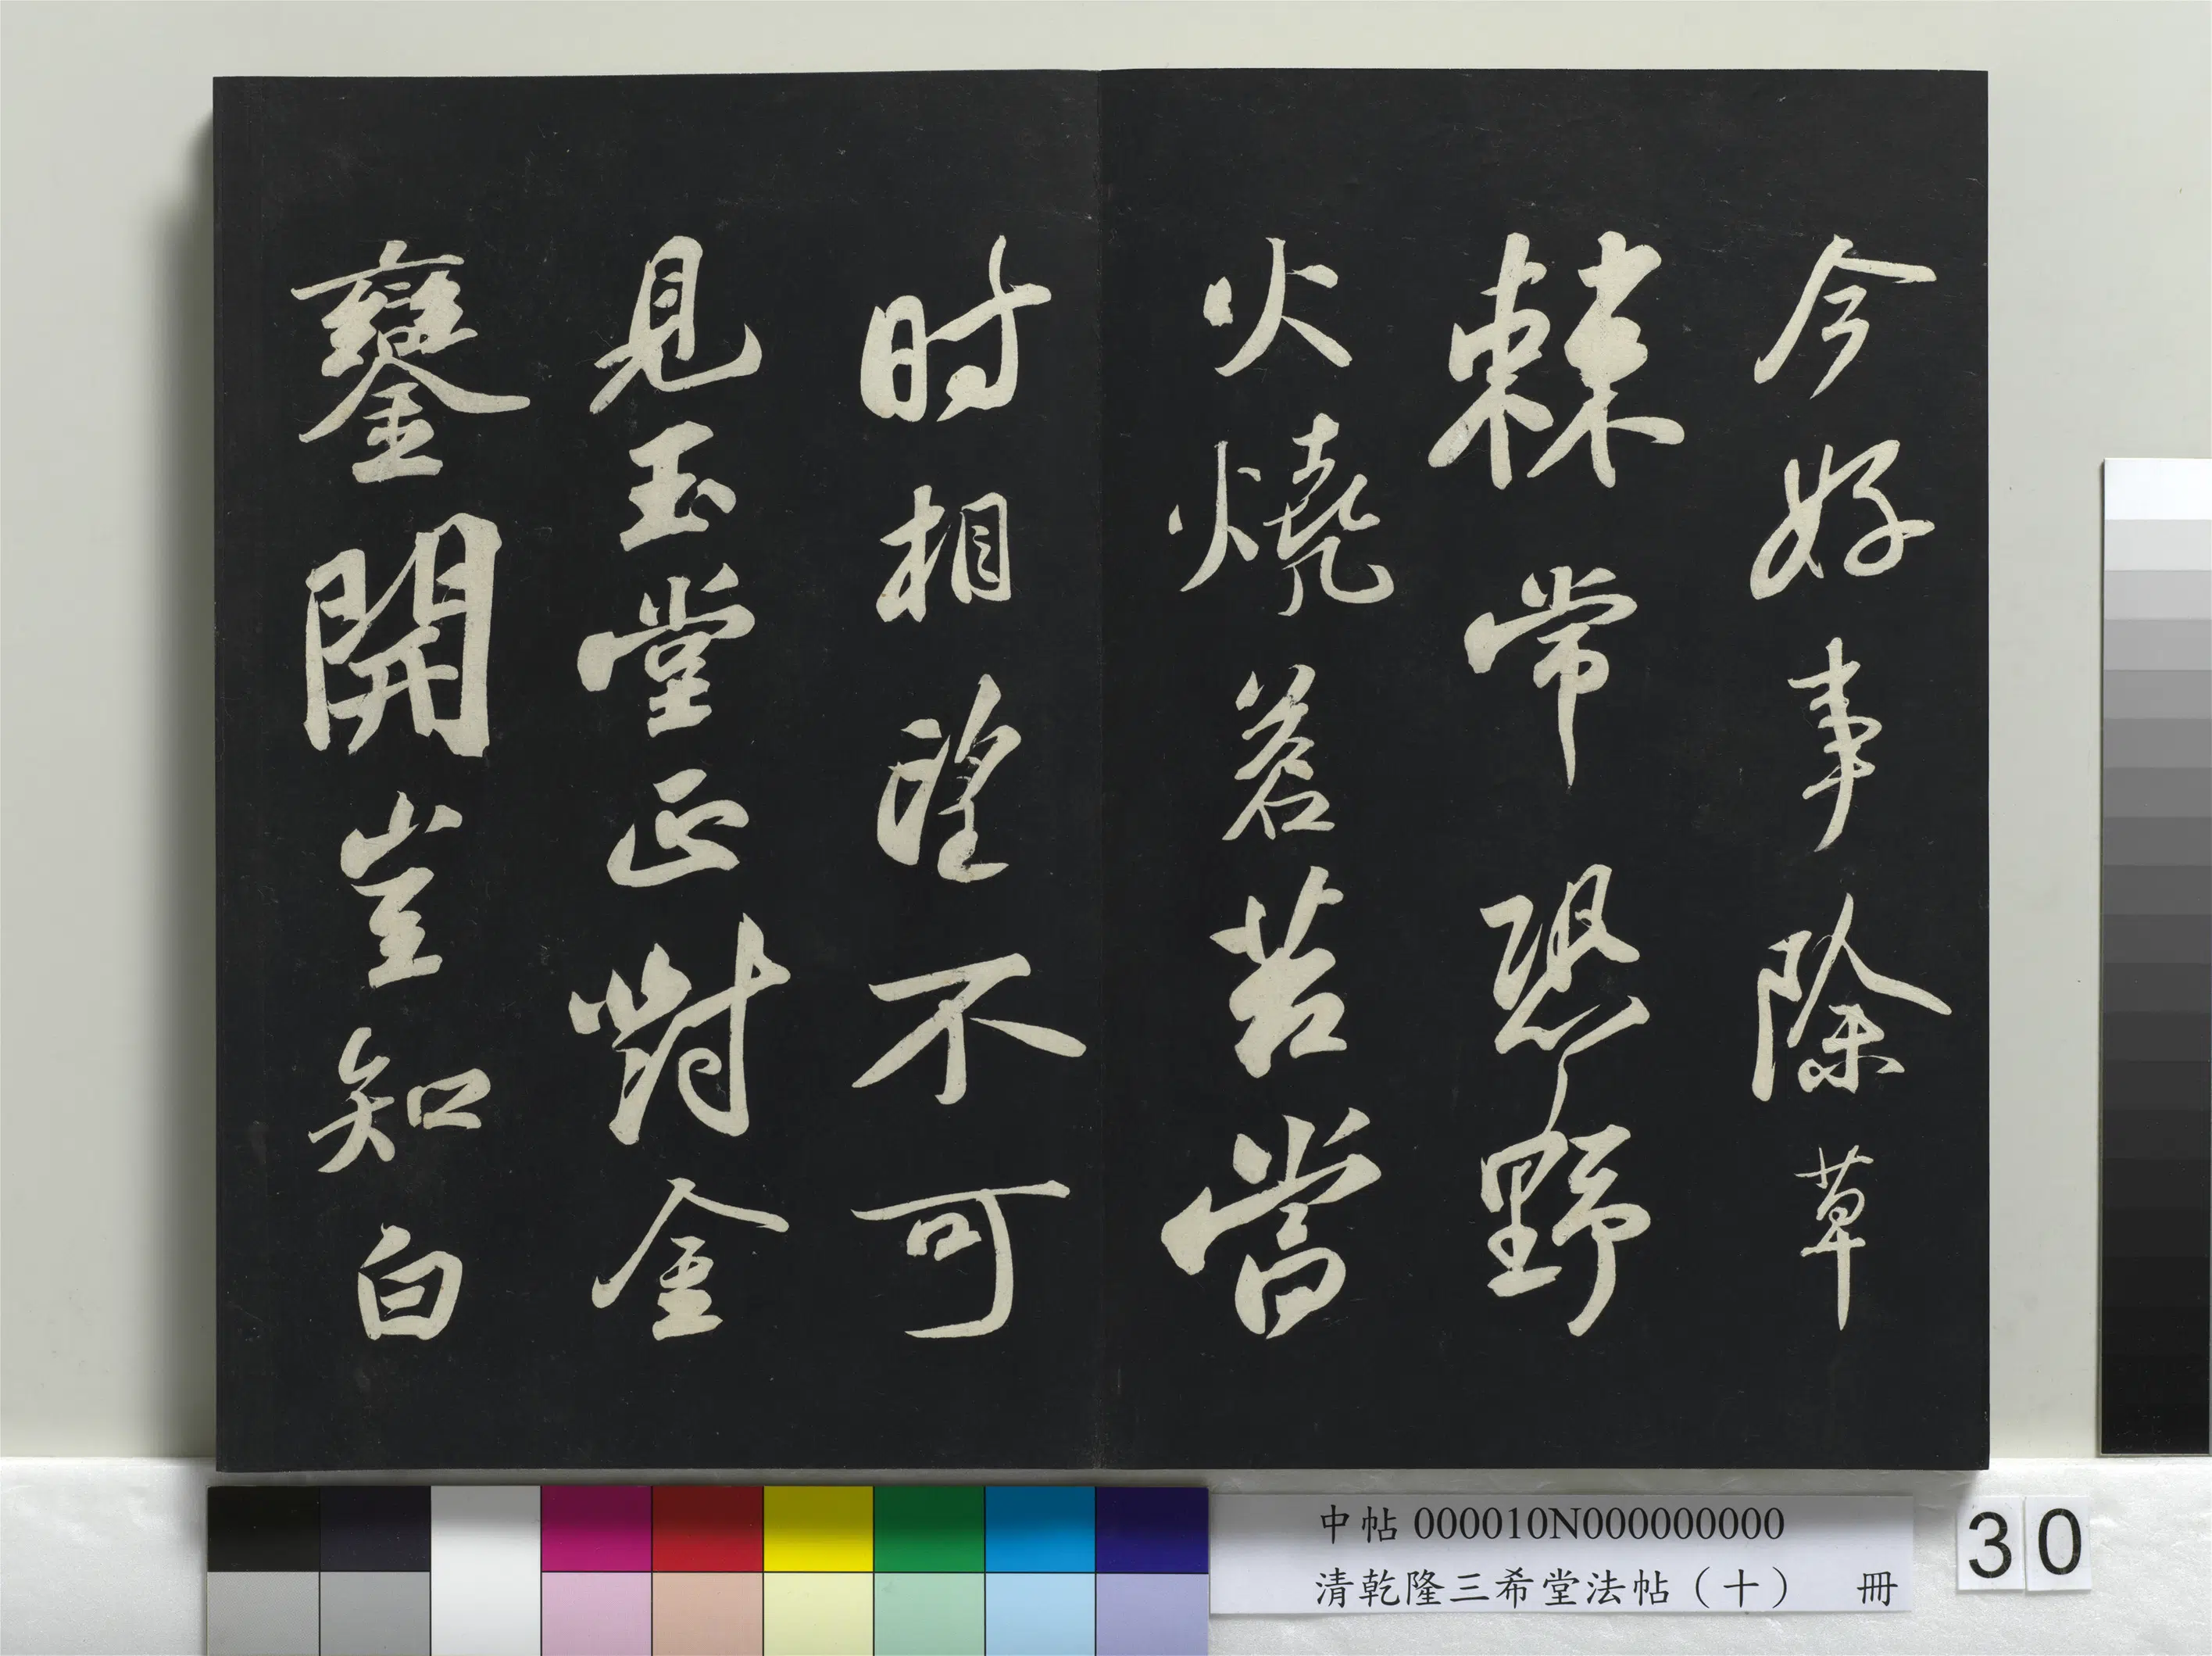 今好事除草
棘常恐野
火燒若苔當
时相望不可
見玉堂正對金
鑾開豈知白
中帖 000010N000000000
清乾隆三希堂法帖（十） 冊
30